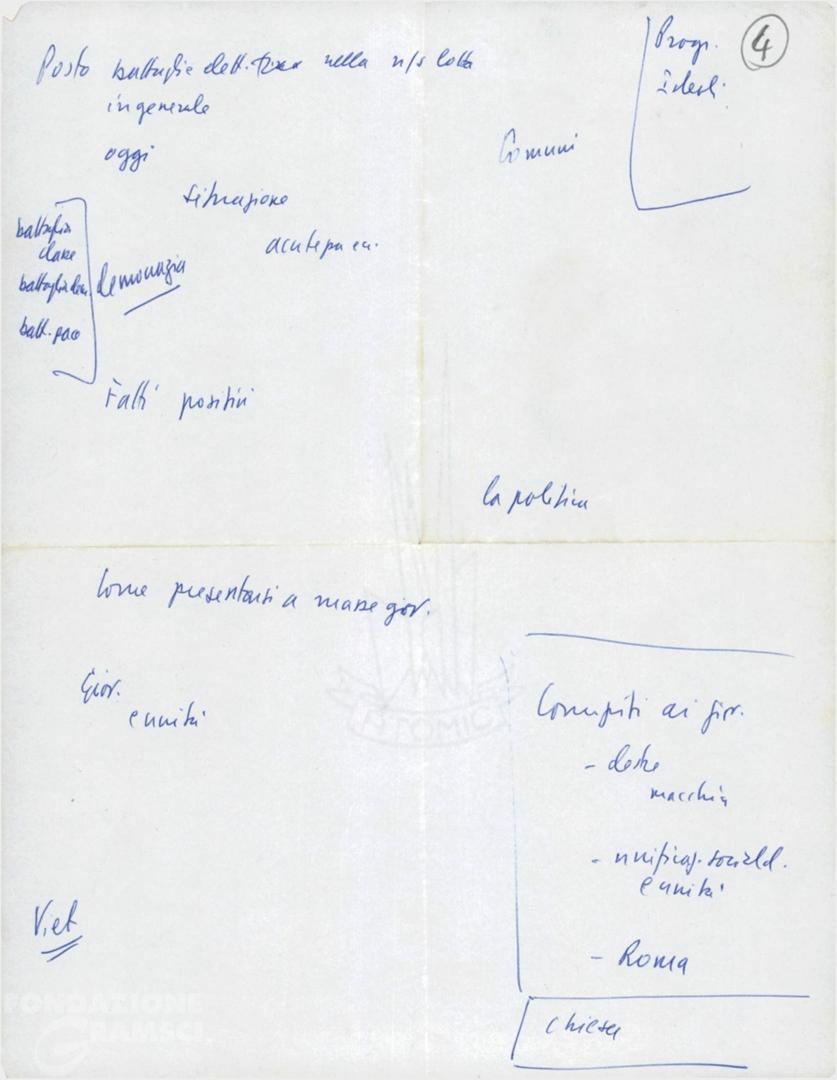 4
Posto battaglie dett. nella n/s lotta
in generale
oggi
situazione
battaglia
classe
battaglia dem.
batt. pace
democrazia
Fatti positivi
Progr.
Ideali
Comuni
la politica
Come presentarsi a masse giov.
Giov.
e unità
Viet
Compiti ai giov.
- destre
macchia
- unificaz. sociald.
e unità
- Roma
Chiesa
ATOMIC
FONDAZIONE
GRAMSCI